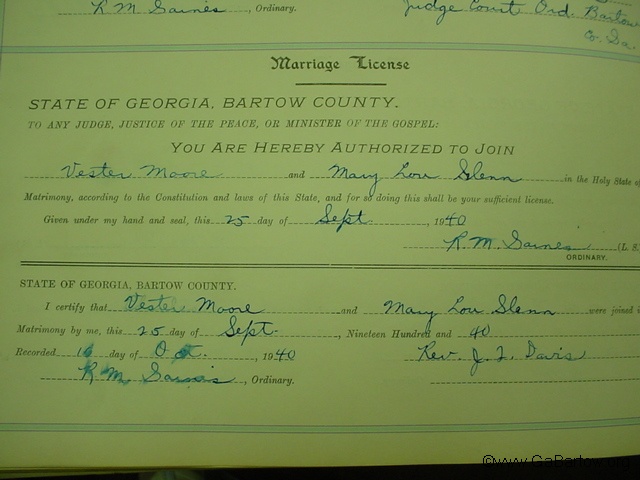 R M Gaines, Ordinary.
Judge Court Ord. Bartow
Co. Ga.
Marriage License
STATE OF GEORGIA, BARTOW COUNTY.
TO ANY JUDGE, JUSTICE OF THE PEACE, OR MINISTER OF THE GOSPEL:
YOU ARE HEREBY AUTHORIZED TO JOIN
Vester Moore and Mary Lou Glenn in the Holy State of
Matrimony, according to the Constitution and laws of this State, and for so doing this shall be your sufficient license.
Given under my hand and seal, this 25 day of Sept., 1940
R. M. Gaines (L. S.
ORDINARY.
STATE OF GEORGIA, BARTOW COUNTY.
I certify that Vester Moore and Mary Lou Glenn were joined in
Matrimony by me, this 25 day of Sept., Nineteen Hundred and 40
Recorded 16 day of Oct., 1940 Rev. J. T. Davis
R M Gaines, Ordinary.
©www.GaBartow.